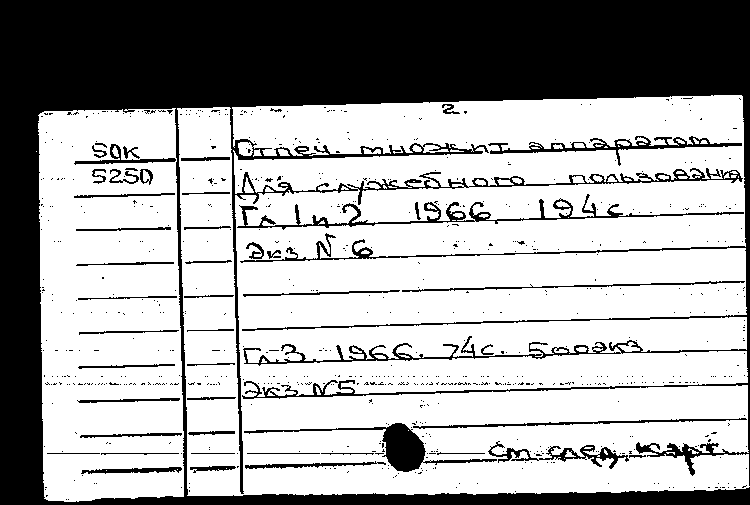 2.
50к Отпеч. множит. аппаратом
5250 Для служебного пользования
Гл. 1 и 2 1966 194 с.
Экз. № 6
Гл. 3. 1966. 74 с. 500 экз.
Экз. № 5
См. след. карт.